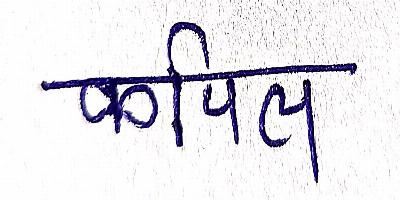 कपिल